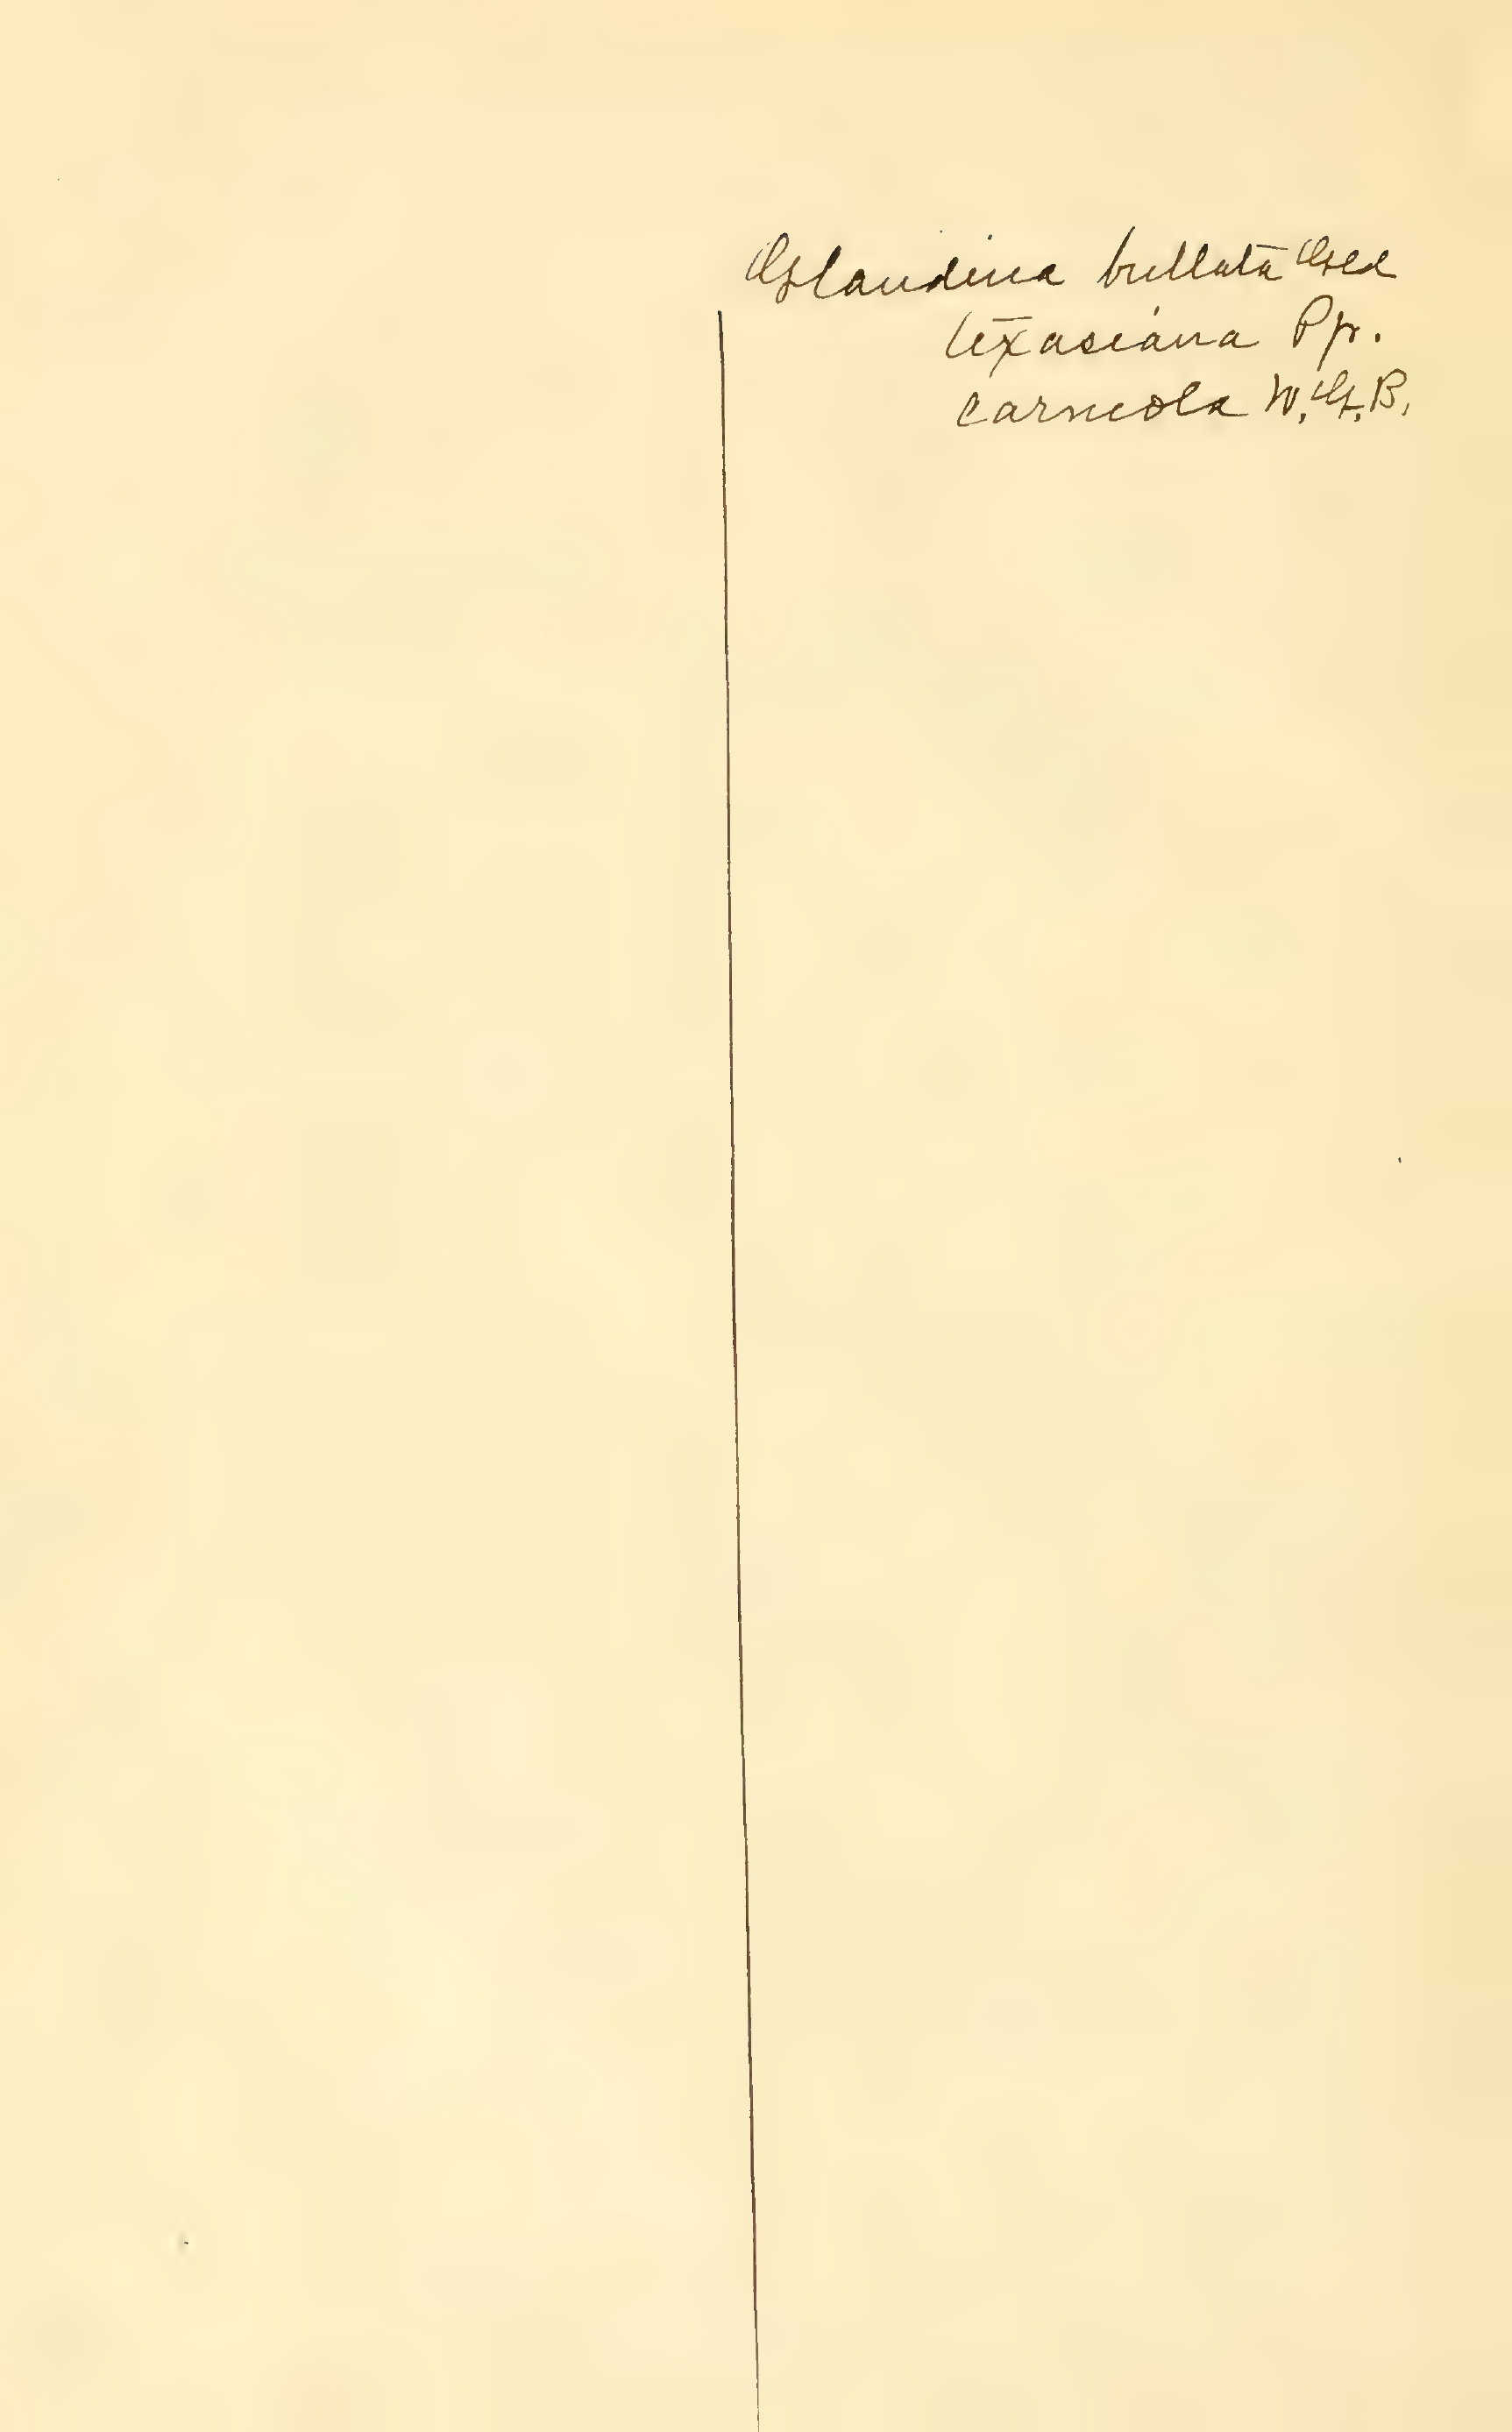 Glandina bullata Gld
texasiana Pfr.
carneola W.G.B.